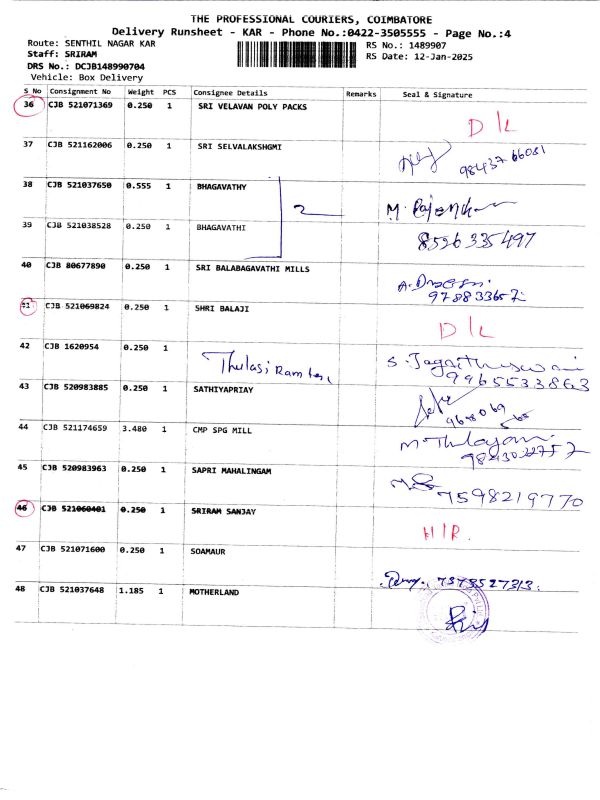 THE PROFESSIONAL COURIERS, COIMBATORE
Delivery Runsheet - KAR - Phone No.:0422-3505555 - Page No.:4
Route: SENTHIL NAGAR KAR
RS No.: 1489907
Staff: SRIRAM
RS Date: 12-Jan-2025
DRS No.: DCJB148990704
Vehicle: Box Delivery
S No Consignment No Weight PCS Consignee Details Remarks Seal & Signature
36 CJB 521071369 0.250 1 SRI VELAVAN POLY PACKS
D/L
37 CJB 521162006 0.250 1 SRI SELVALAKSHGMI
98437 66081
38 CJB 521037650 0.555 1 BHAGAVATHY
2 M.
39 CJB 521038528 0.250 1 BHAGAVATHI
8526335497
40 CJB 80677890 0.250 1 SRI BALABAGAVATHI MILLS
A.
41 CJB 521069824 0.250 1 SHRI BALAJI
D/L
42 CJB 1620954 0.250 1 Thulasi Ram
9965533863
43 CJB 520983885 0.250 1 SATHIYAPRIAY
44 CJB 521174659 3.480 1 CMP SPG MILL
45 CJB 520983963 0.250 1 SAPRI MAHALINGAM
7598219770
46 CJB 521060401 0.250 1 SRIRAM SANJAY
H/R.
47 CJB 521071600 0.250 1 SOAMAUR
7373527313.
48 CJB 521037648 1.185 1 MOTHERLAND